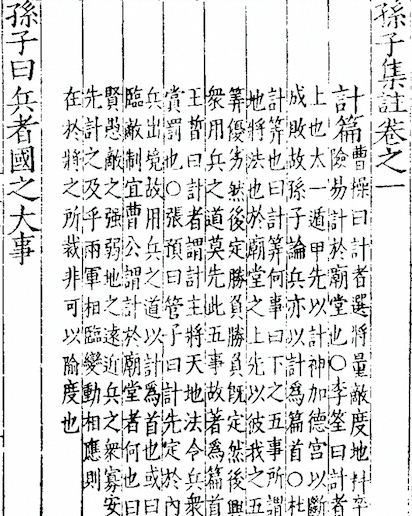 孫子集註卷之一
計篇
曹操曰計者選將量敵度地料卒
險易計於廟堂也○李筌曰計者
上也太一遁甲先以計神加德宮以斷
成敗故孫子論兵亦以計爲篇首○杜
計筭也曰計筭何事曰下之五事所謂
地將法也於廟堂之上先以彼我之五
筭優劣然後定勝負勝負旣定然後興
衆用兵之道莫先此五事故著爲篇首
王晳曰計者謂計主將天地法令兵衆
賞罰也○張預曰管子曰計先定於內
兵出境故用兵之道以計爲首也或曰
臨敵制宜曹公謂計於廟堂者何也曰
賢愚敵之强弱地之遠近兵之衆寡安
先計之及乎兩軍相臨變動相應則
在於將之所裁非可以隃度也
孫子曰兵者國之大事